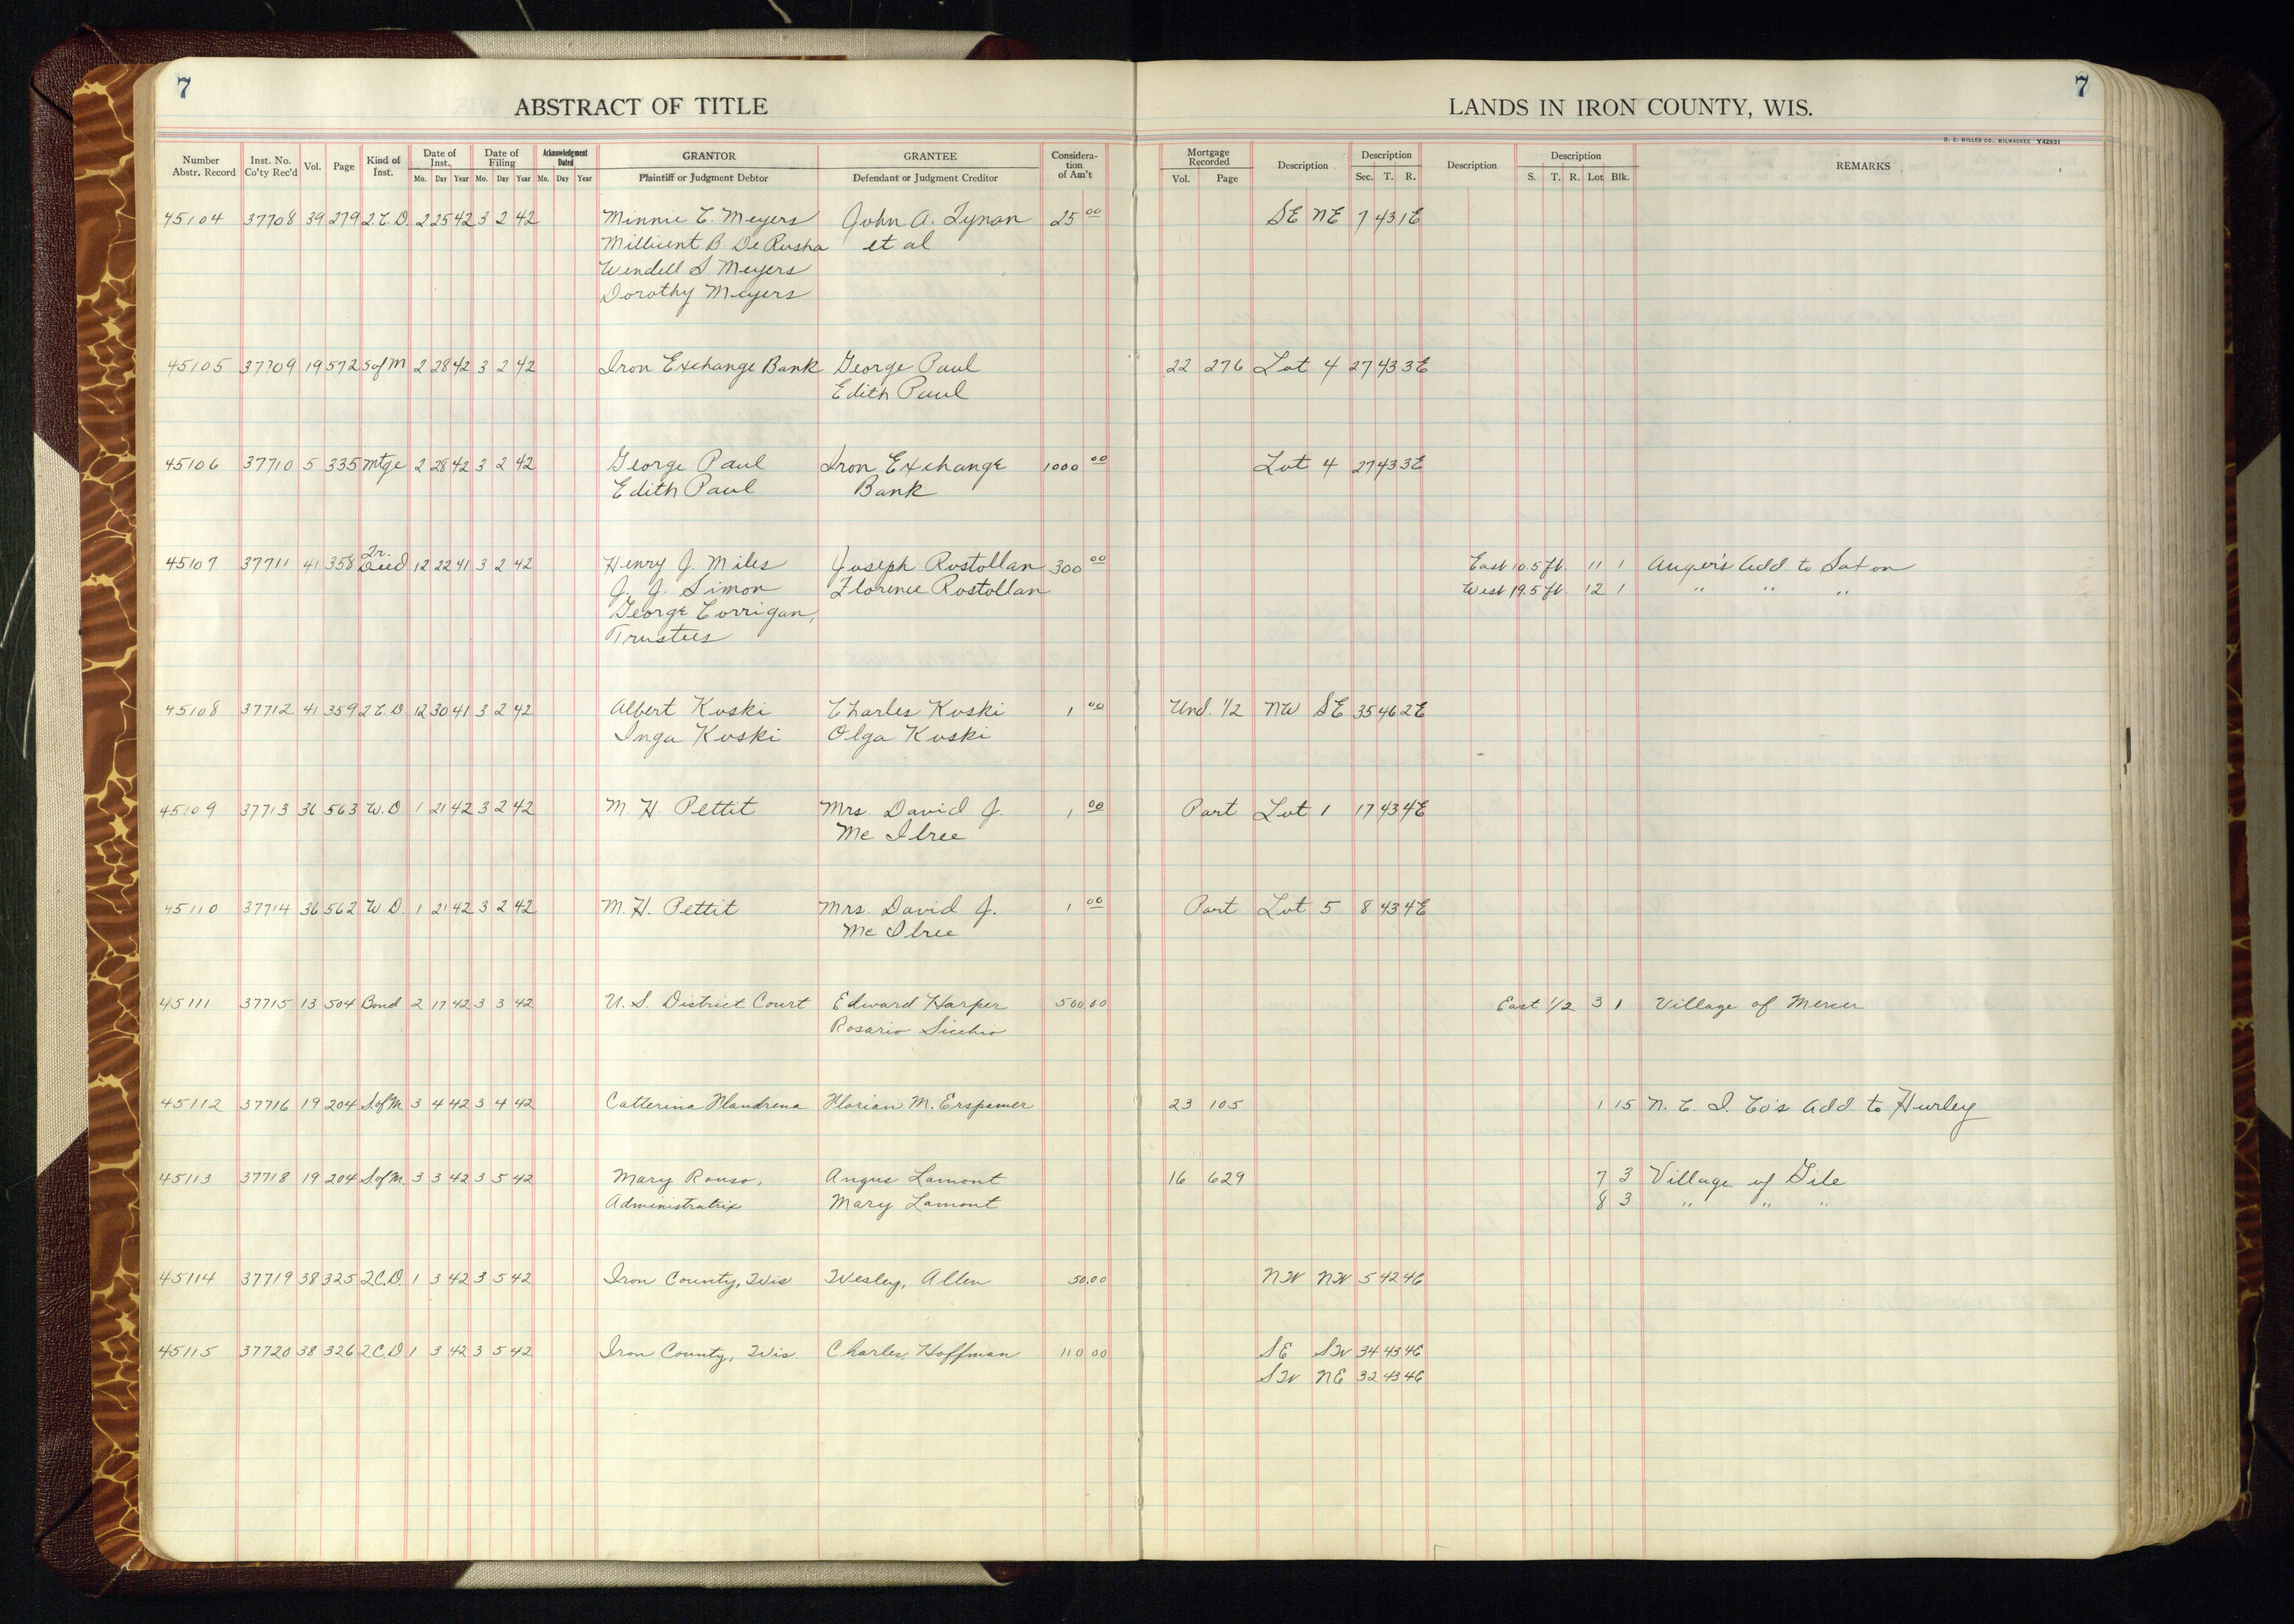 7
ABSTRACT OF TITLE
LANDS IN IRON COUNTY, WIS.
7
H. C. MILLER CO., MILWAUKEE Y42931
Number Abstr. Record Inst. No. Co'ty Rec'd Vol. Page Kind of Inst. Date of Inst. Mo. Day Year Date of Filing Mo. Day Year Acknowledgment Dated Mo. Day Year GRANTOR Plaintiff or Judgment Debtor GRANTEE Defendant or Judgment Creditor Consideration of Am't Mortgage Recorded Vol. Page Description Description Sec. T. R. Description Description S. T. R. Lot Blk. REMARKS
45104 37708 39 279 2.C.D. 2 25 42 3 2 42 Minnie C. Meyers John A. Tynan 25 00 SE NE 7 43 1E
Millicent B. De Rusha et al
Wendell S Meyers
Dorothy Meyers
45105 37709 19 572 S of M 2 28 42 3 2 42 Iron Exchange Bank George Paul 22 276 Lot 4 27 43 3E
Edith Paul
45106 37710 5 335 Mtge 2 28 42 3 2 42 George Paul Iron Exchange 1000 00 Lot 4 27 43 3E
Edith Paul Bank
45107 37711 41 358 Tr. Deed 12 22 41 3 2 42 Henry J. Miles Joseph Rostollan 300 00 East 10.5 ft. 11 1 Anger's Add. to Saxon
J. J. Simon Florence Rostollan West 19.5 ft. 12 1 " " "
George Corrigan,
Trustees
45108 37712 41 359 2.C.D 12 30 41 3 2 42 Albert Koski Charles Koski 1 00 Und. 1/2 NW SE 35 46 2E
Inga Koski Olga Koski
45109 37713 36 563 W.D. 1 21 42 3 2 42 M. H. Pettit Mrs. David J. 1 00 Part Lot 1 17 43 4E
Mc Ilree
45110 37714 36 562 W.D. 1 21 42 3 2 42 M. H. Pettit Mrs. David J. 1 00 Part Lot 5 8 43 4E
Mc Ilree
45111 37715 13 504 Bond 2 17 42 3 3 42 U. S. District Court Edward Harper 500.00 East 1/2 3 1 Village of Mercer
Rosario Sicchio
45112 37716 19 204 S.of M. 3 4 42 3 4 42 Catterina Florian M. Erspamer 23 105 1 15 N. C. I. Co's Add to Hurley
45113 37718 19 204 S.of M. 3 3 42 3 5 42 Mary Rouso, Angus Lamont 16 629 7 3 Village of Gile
Administratrix Mary Lamont 8 3 " " "
45114 37719 38 325 2C.D. 1 3 42 3 5 42 Iron County, Wis Wesley, Allen 50.00 NW NW 5 42 4E
45115 37720 38 326 2C.D 1 3 42 3 5 42 Iron County, Wis. Charles Hoffman 110 00 SE SW 34 43 4E
SW NE 32 43 4E